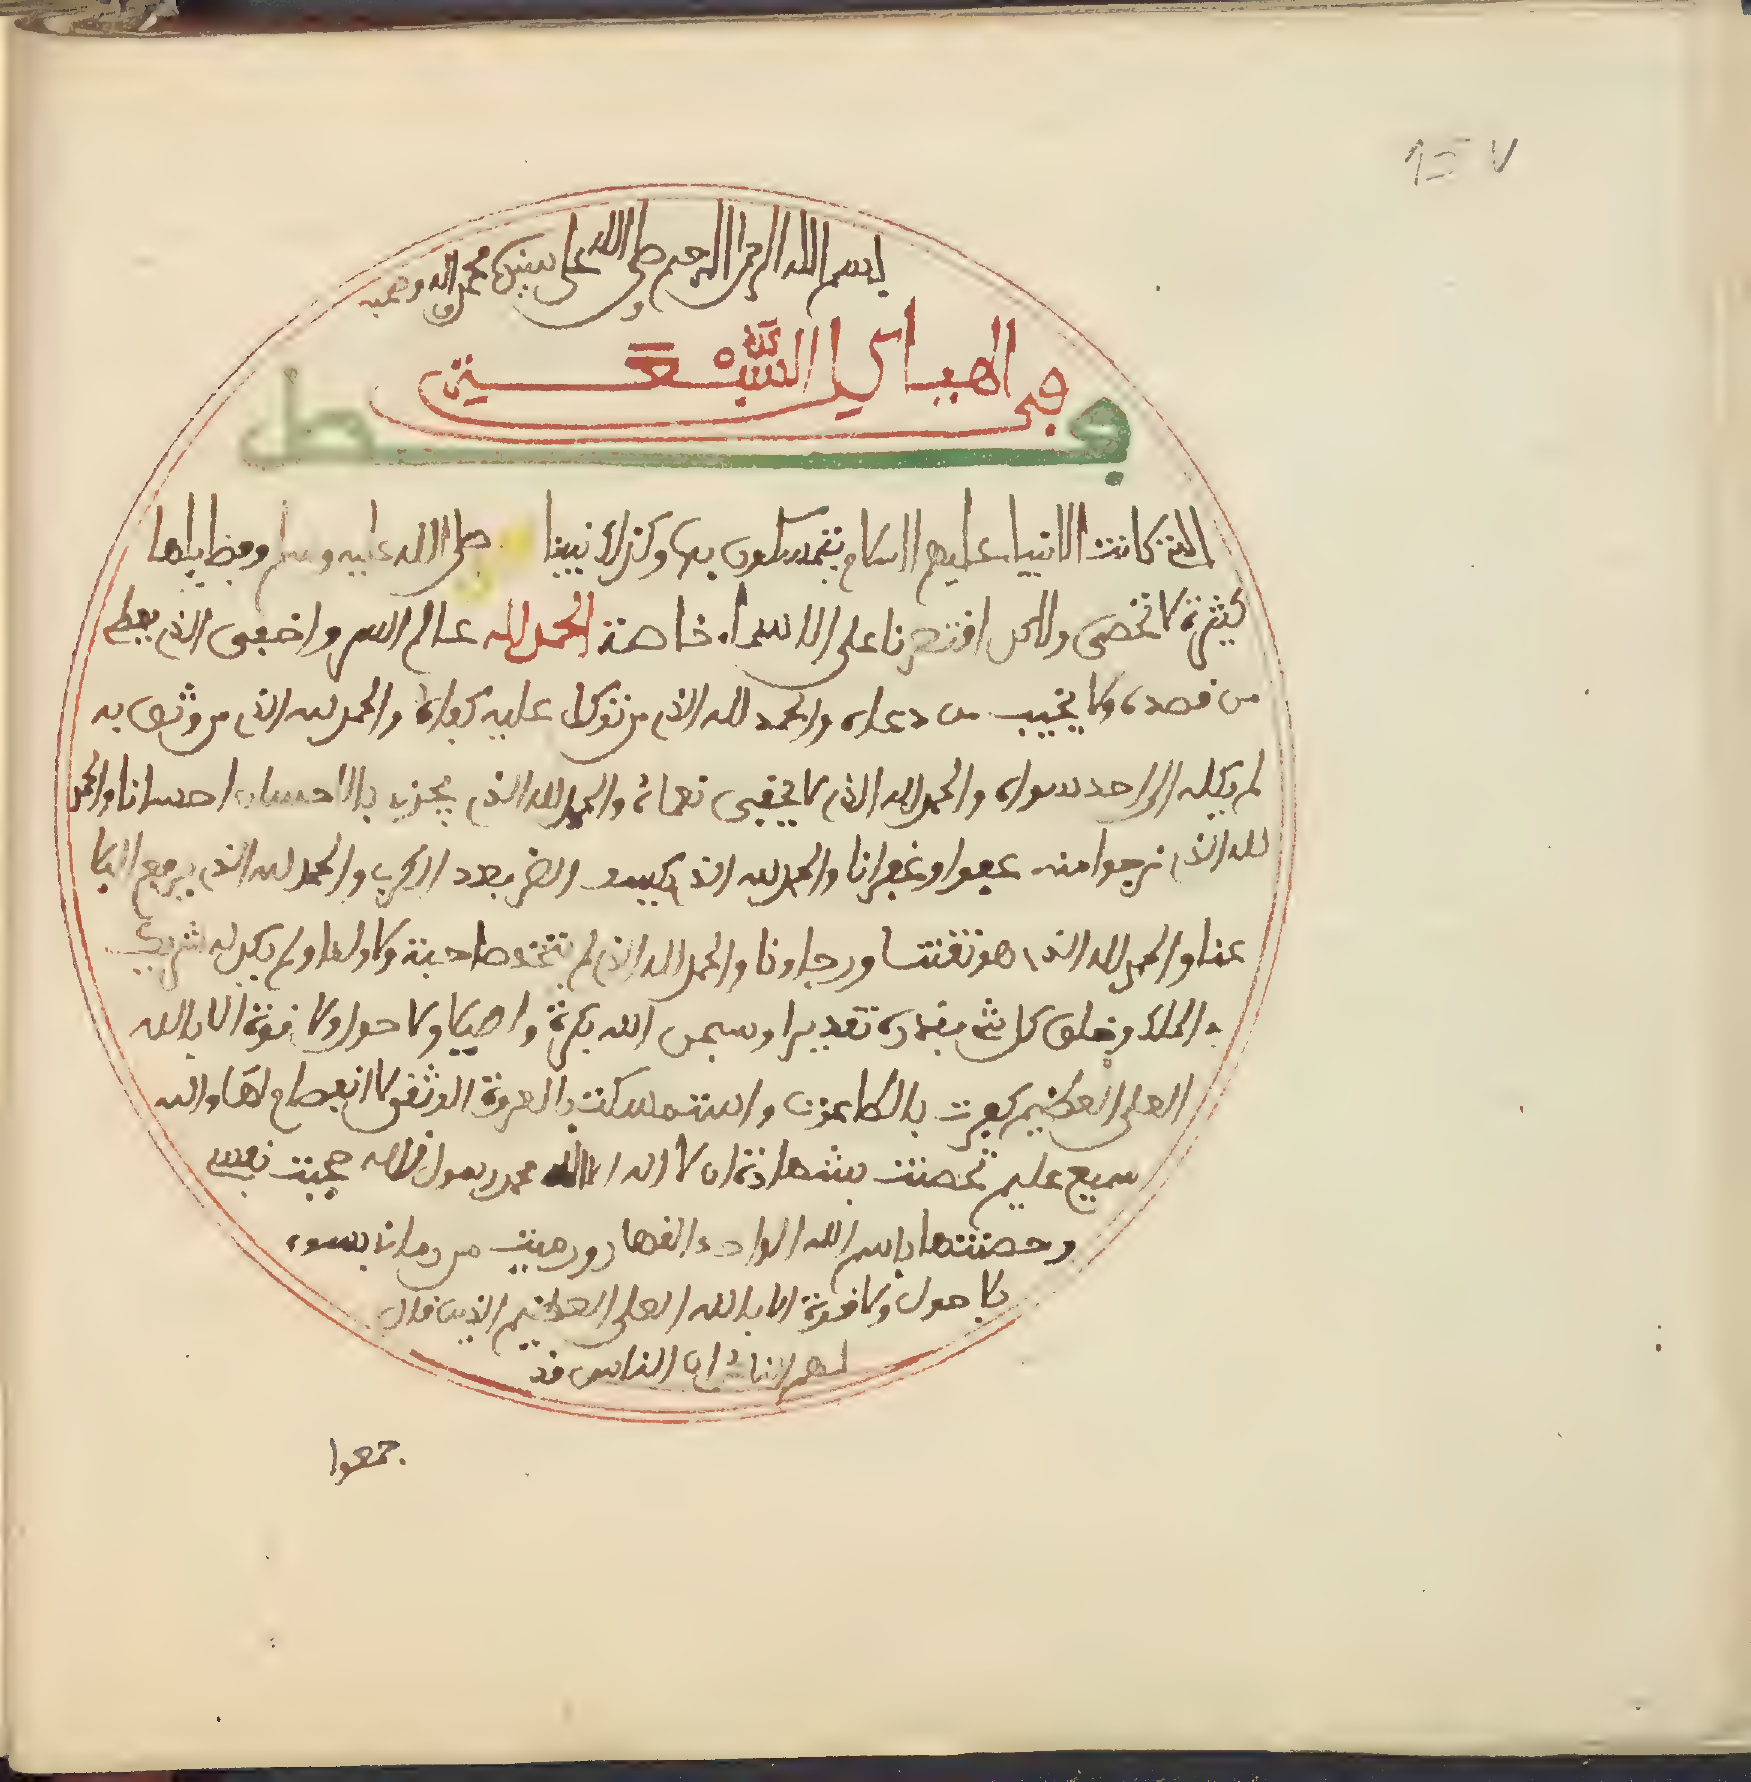 بسم الله الرحمن الرحيم صلى الله على سيدنا محمد واله وصحبه
في الهياكل السبعة
فصل
التي كانت الانبياء عليهم السلام يتمسكون بها وكذلك نبينا صلى الله عليه وسلم وفضايلها
كثيرة لا تحصى ولاكن اقتصرنا على الاسماء خاصة الحمد لله عالم السر واخفى الذي يعطي
من قصده ولا يخيب من دعاه والحمد لله الذي من توكل عليه كفاه والحمد لله الذي من وثق به
لم يكله الى احد سواه والحمد لله الذي لا تخفى نعماه والحمد لله الذي يجزي بالاحسان احسانا والحمد
لله الذي نرجوا منه عفوا وغفرانا والحمد لله الذي يكشف الضر بعد الكرب والحمد لله الذي يرفع البلا
عنا والحمد لله الذي هو ثقتنا ورجاونا والحمد لله الذي لم يتخذ صاحبة ولا ولدا ولم يكن له شريك
في الملك وخلق كل شيء بقدره تقديرا وسبحن الله بكرة واصيلا ولا حول ولا قوة الا بالله
العلي العظيم كفرت بالطاغوت واستمسكت بالعروة الوثقى لا انفصام لها والله
سميع عليم تحصنت بشهادة ان لا اله الا الله محمد رسول الله حجبت نفسي
وحصنتها باسم الله الواحد القهار ورميت من رماني بسوء
بلا حول ولا قوة الا بالله العلي العظيم الذين قال
لهم الناس ان الناس قد
جمعوا